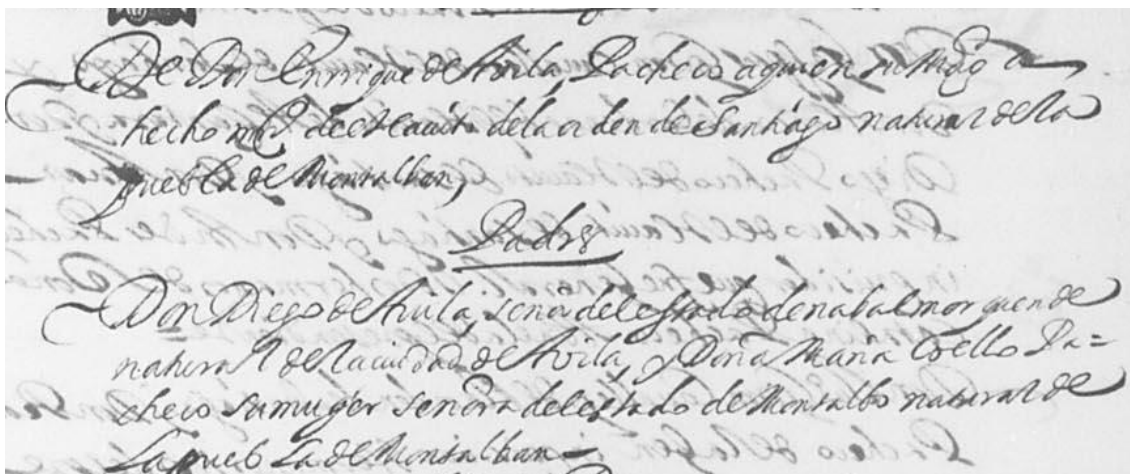 De Don Enrrique de Avila, Pacheco aquien su Magd a
hecho md. del avito dela orden de Santiago natural de la
puebla de Montalban,
Padres
Don Diego de Avila, señor del estado de nabalmorquende
natural de la ciudad de Avila, y Doña Maria Coello Pa=
checo su muger señora del estado de Montalbo natural de
la puebla de Montalban